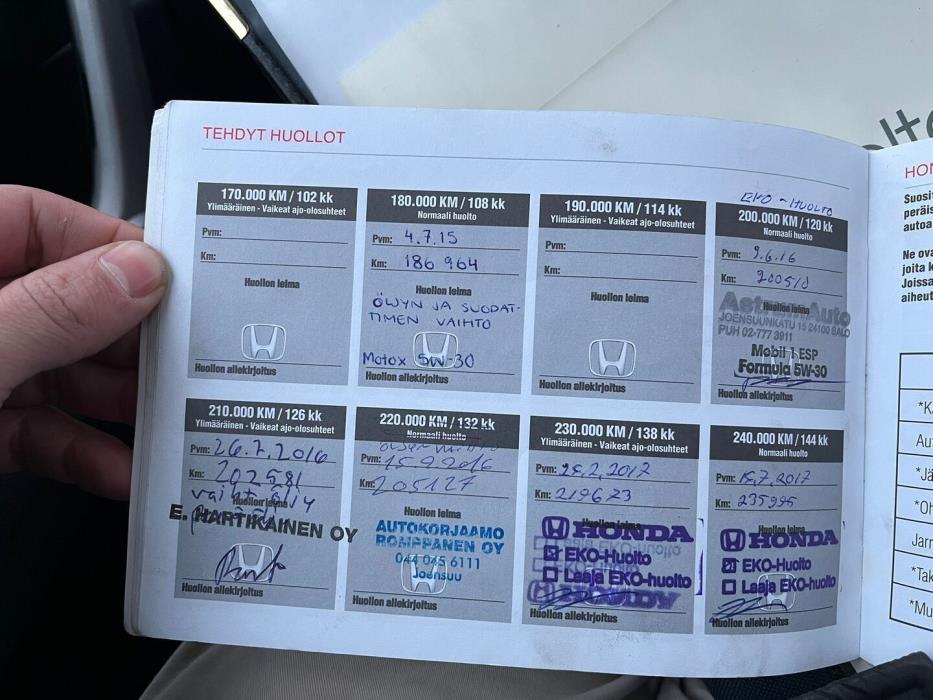 TEHDYT HUOLLOT
170.000 KM / 102 kk
Ylimääräinen - Vaikeat ajo-olosuhteet
Pvm:
Km:
Huollon leima
Huollon allekirjoitus
180.000 KM / 108 kk
Normaali huolto
Pvm: 4.7.15
Km: 186 964
Huollon leima
ÖLJYN JA SUODAT-
TIMEN VAIHTO
Motox 5W-30
Huollon allekirjoitus
190.000 KM / 114 kk
Ylimääräinen - Vaikeat ajo-olosuhteet
Pvm:
Km:
Huollon leima
Huollon allekirjoitus
EKO-HUOLTO
200.000 KM / 120 kk
Normaali huolto
Pvm: 9.6.16
Km: 200510
Huollon leima
AstrumAuto
JOENSUUNKATU 15 24100 SALO
PUH 02-777 3911
Mobil 1 ESP
Formula 5W-30
Huollon allekirjoitus
210.000 KM / 126 kk
Ylimääräinen - Vaikeat ajo-olosuhteet
Pvm: 26.7.2016
Km: 202581
Huollon leima
E. HARTIKAINEN OY
Huollon allekirjoitus
220.000 KM / 132 kk
Normaali huolto
Pvm: 15.9.2016
Km: 205127
Huollon leima
AUTOKORJAAMO
ROMPPANEN OY
044 045 6111
Joensuu
Huollon allekirjoitus
230.000 KM / 138 kk
Ylimääräinen - Vaikeat ajo-olosuhteet
Pvm: 25.2.2017
Km: 219673
Huollon leima
HONDA
EKO-Huolto
Laaja EKO-huolto
Huollon allekirjoitus
240.000 KM / 144 kk
Normaali huolto
Pvm: 15.7.2017
Km: 235995
Huollon leima
HONDA
EKO-Huolto
Laaja EKO-huolto
Huollon allekirjoitus
HON
Suosit
peräis
autoa
Ne ova
joita k
Joissa
aiheut
*Ka
Aut
*Jä
*Oh
Jarr
*Tak
*Mu